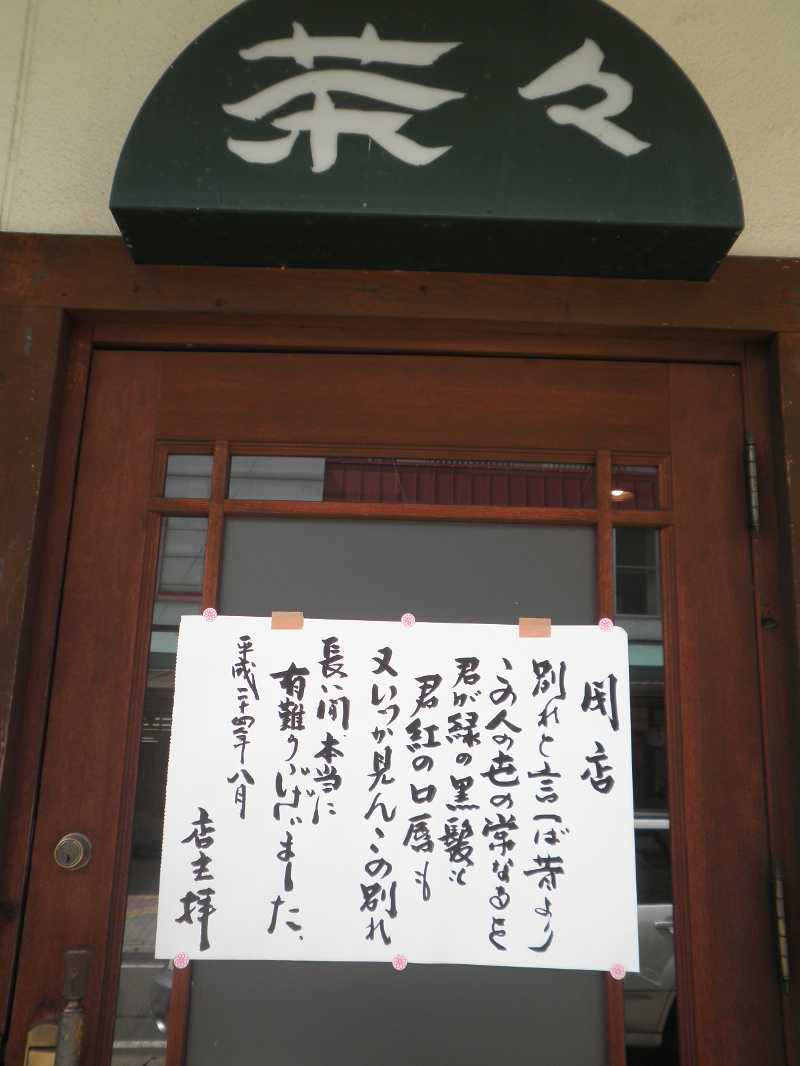 茶々
閉店
別れと言へば昔より
この人の世の常なるを
君が緑の黒髪も
君紅の口唇も
又いつか見んこの別れ
長い間、本当に
有難うございました、
平成二十四年八月
店主拝